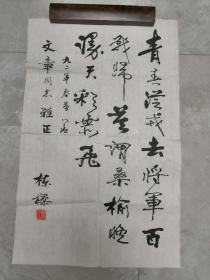 青春从戎去将军百
战归莫谓桑榆晚
漫天彩霞飞
九二年春节
文章同志雅正
栋梁